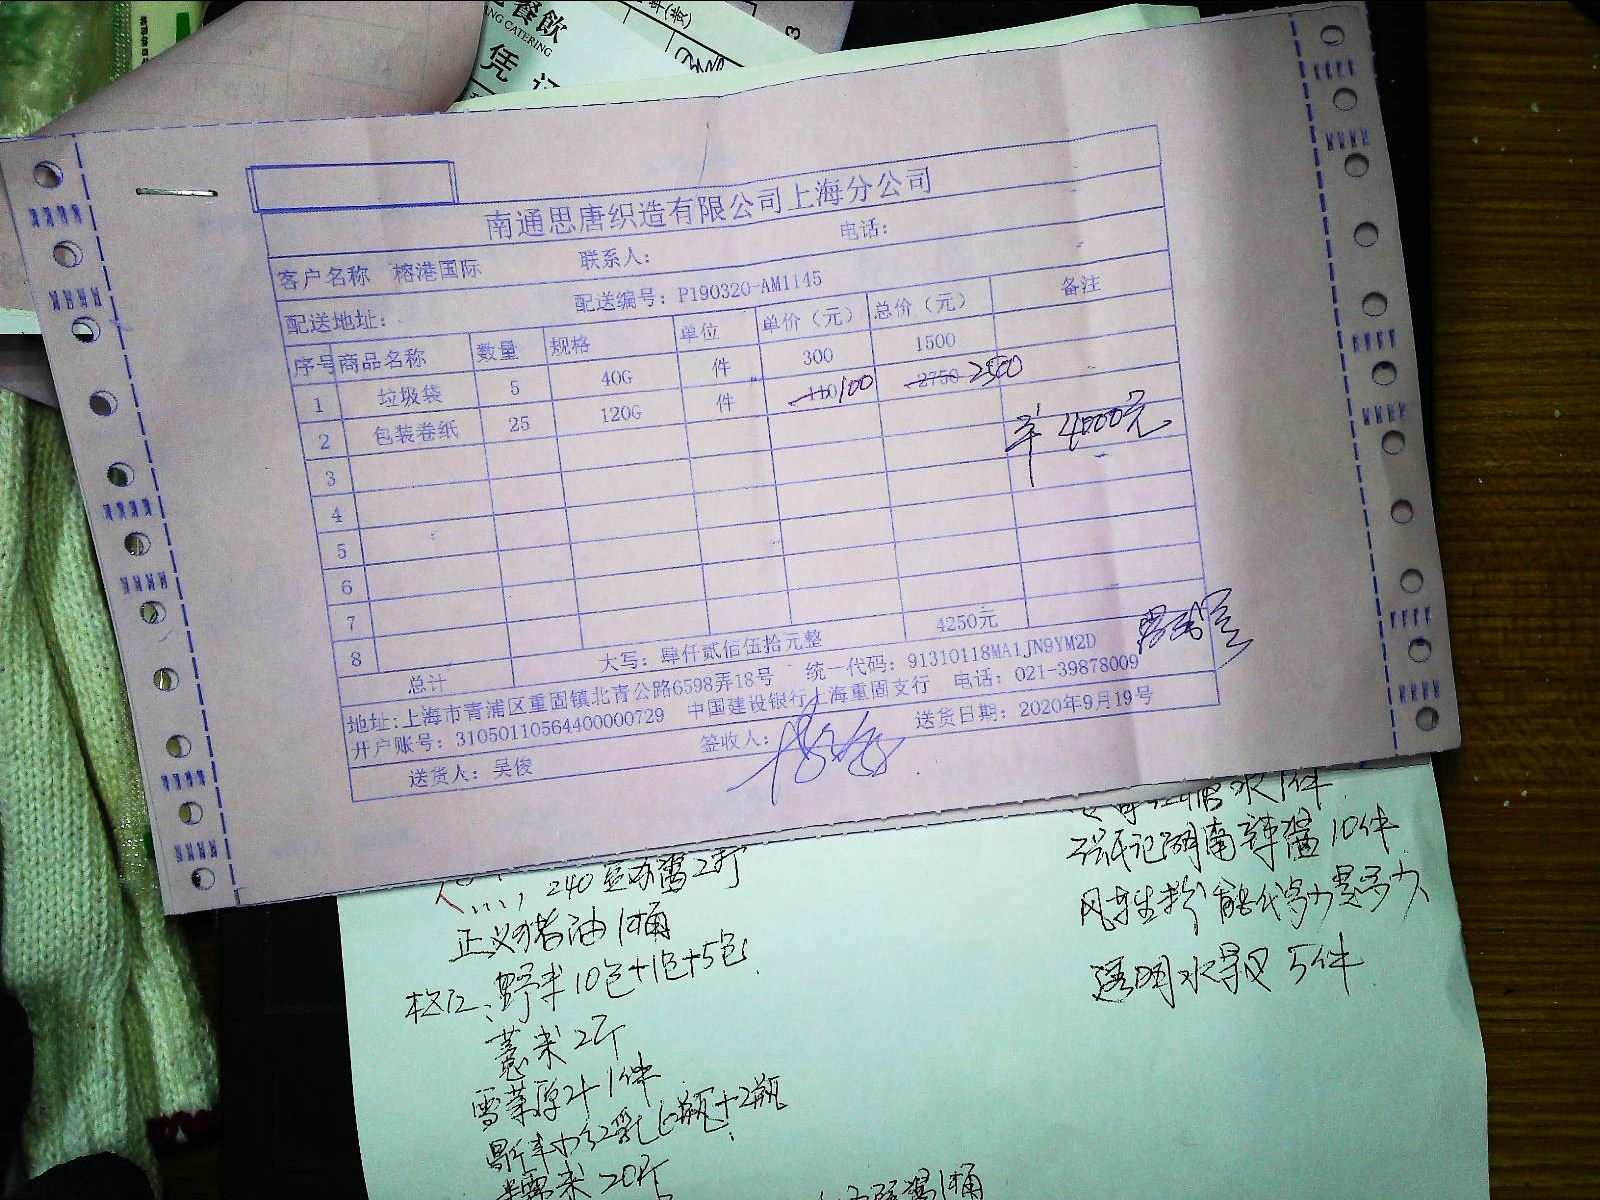 餐飲
CATERING
凭
南通思唐织造有限公司上海分公司
客户名称 榕港国际 联系人： 电话：
配送地址： 配送编号：P190320-AM1145
序号 商品名称 数量 规格 单位 单价（元） 总价（元） 备注
1 垃圾袋 5 40G 件 300 1500
2 包装卷纸 25 120G 件 110 100 2750 2500
3
4000元
4
5
6
7
8
总计 大写：肆仟贰佰伍拾元整 4250元
地址：上海市青浦区重固镇北青公路6598弄18号 统一代码：91310118MA1JN9YM2D
开户账号：31050110564400000729 中国建设银行上海重固支行 电话：021-39878009
送货人：吴俊 签收人： 送货日期：2020年9月19号
水1件
湖南辣酱10件
风车生粉 能代多少要多少
透明水晶 5件
240 2打
正义猪油1桶
松江：野米10包+1包+5包
薏米2斤
雪菜原汁1件
红乳6瓶+2瓶
糯米20斤
1桶